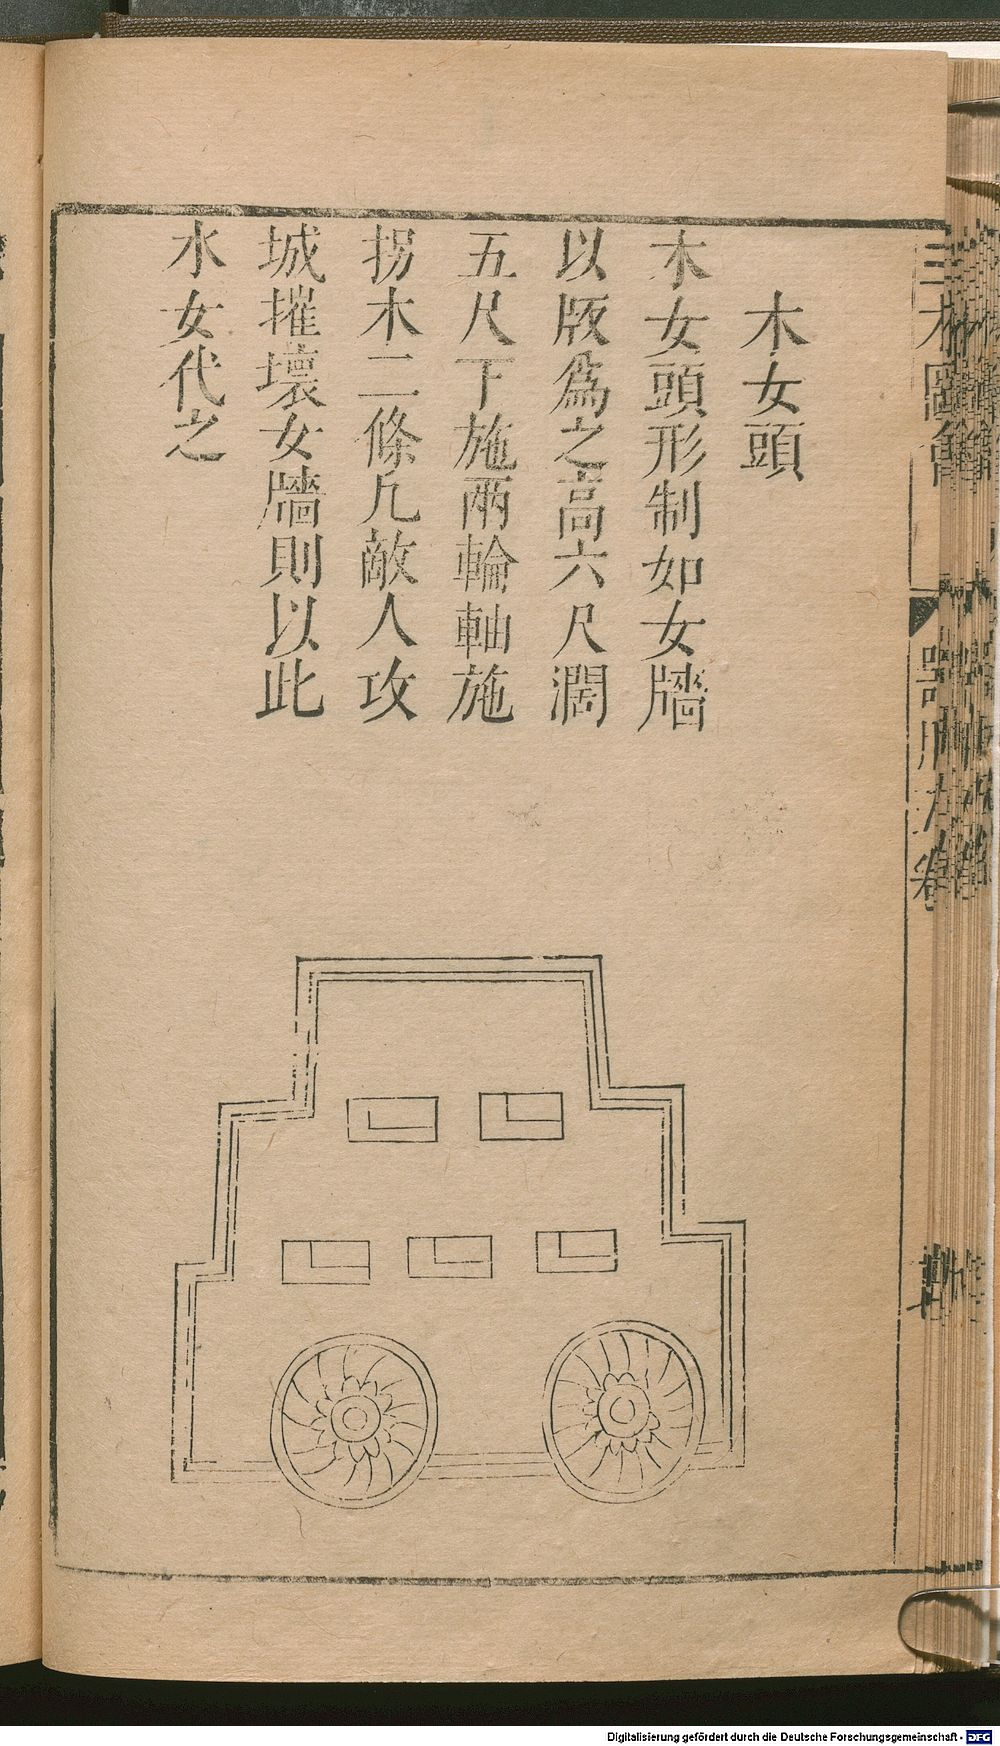 木女頭
木女頭形制如女牆
以版爲之高六尺濶
五尺下施兩輪軸施
拐木二條凡敵人攻
城摧壞女牆則以此
水女代之
三才圖會
器用六卷
Digitalisierung gefördert durch die Deutsche Forschungsgemeinschaft - DFG